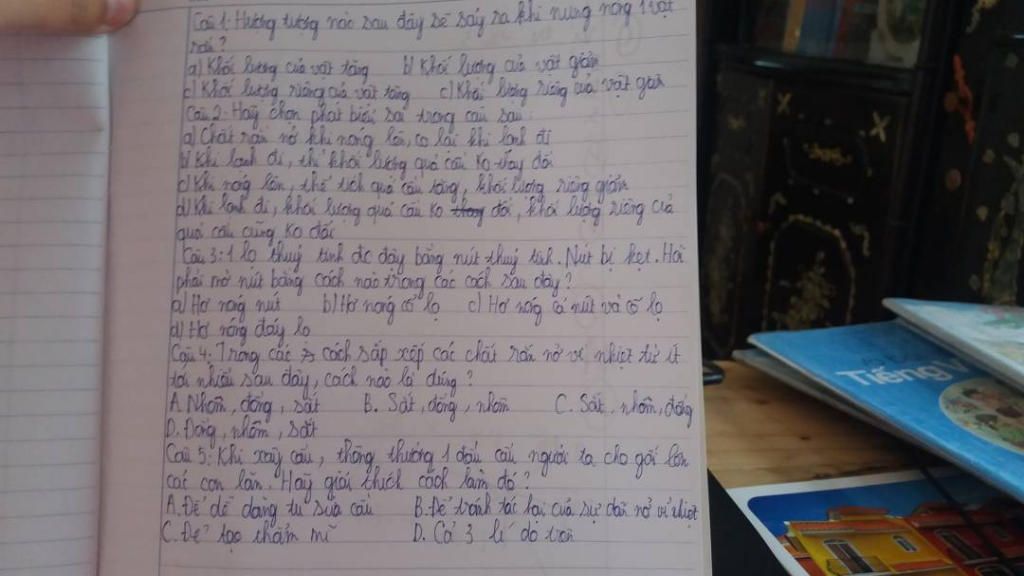 Câu 1: Hượng tượng nào sau đây sẽ sảy ra khi nung nóng 1 vật
rắn?
a) Khối lượng của vật tăng b) Khối lượng của vật giảm
c) Khối lượng riêng của vật tăng c) Khối lượng riêng của vật giảm
Câu 2: Hãy chọn phát biểu sai trong câu sau:
a) Chất rắn nở khi nóng lên, co lại khi lạnh đi
b) Khi lạnh đi, thì khối lượng quả cầu ko thay đổi
c) Khi nóng lên, thể tích quả cầu tăng, khối lượng riêng giảm
d) Khi lạnh đi, khối lượng quả cầu ko thay đổi, khối lượng riêng của
quả cầu cũng ko đổi
Câu 3: 1 lọ thuỷ tinh đc đậy bằng nút thuỷ tinh. Nút bị kẹt. Hỏi
phải mở nút bằng cách nào trong các cách sau đây?
a) Hơ nóng nút b) Hơ nóng cổ lọ c) Hơ nóng cả nút và cổ lọ
d) Hơ nóng đáy lọ
Câu 4: Trong các cách sắp xếp các chất rắn nở vì nhiệt từ ít
tới nhiều sau đây, cách nào là đúng?
A. Nhôm, đồng, sắt B. Sắt, đồng, nhôm C. Sắt, nhôm, đồng
D. Đồng, nhôm, sắt
Câu 5: Khi xây cầu, thông thường 1 đầu cầu người ta cho gối lên
các con lăn. Hãy giải thích cách làm đó?
A. Để dễ dàng tu sửa cầu B. Để tránh tác hại của sự dãn nở vì nhiệt
C. Để tạo thẩm mĩ D. Cả 3 lí do trên
Tiếng V